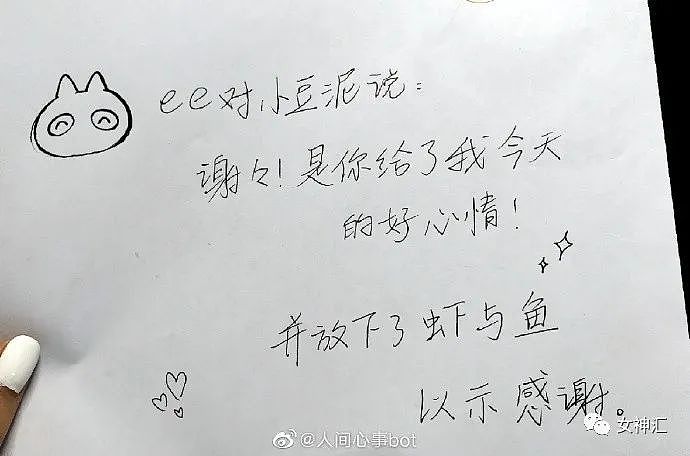 ee对小豆泥说：
谢々！是你给了我今天
的好心情！
并放下了虾与鱼
以示感谢。
@人间心事bot
女神汇